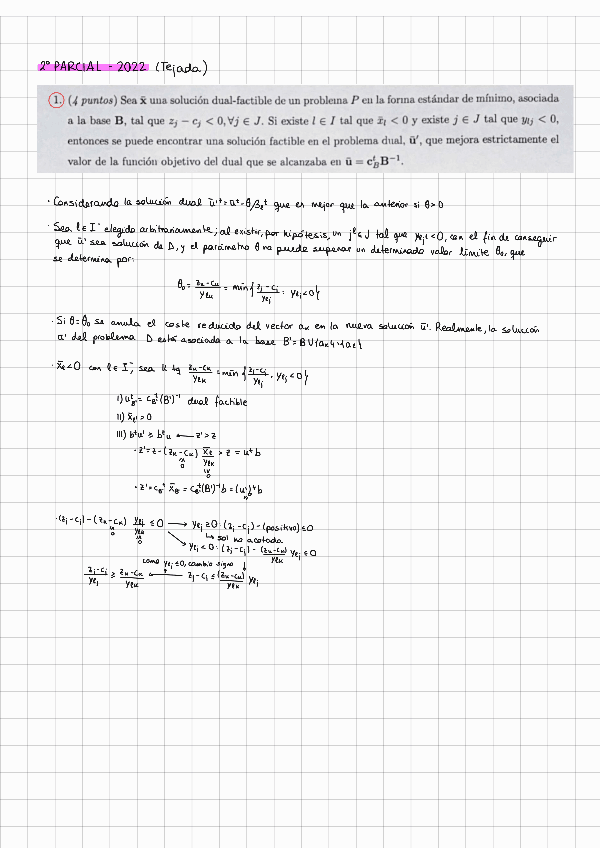 2º PARCIAL - 2022 (Tejada)
1. (4 puntos) Sea x̄ una solución dual-factible de un problema P en la forma estándar de mínimo, asociada
a la base B, tal que zj − cj < 0, ∀j ∈ J. Si existe l ∈ I tal que x̄l < 0 y existe j ∈ J tal que ylj < 0,
entonces se puede encontrar una solución factible en el problema dual, ū', que mejora estrictamente el
valor de la función objetivo del dual que se alcanzaba en ū = cᵗB B⁻¹.
· Considerando la solución dual ū'ᵗ = ūᵗ - θβℓᵗ que es mejor que la anterior si θ>0
· Sea l ∈ I⁻ elegido arbitrariamente; al existir, por hipótesis, un jˡ ∈ J tal que yℓj<0, con el fin de conseguir
que ū' sea solución de D, y el parámetro θ no puede superar un determinado valor límite θ₀, que
se determina por:
θ₀ = (zk-ck)/yℓk = min{ (zj-cj)/yℓj : yℓj<0 }
· Si θ=θ₀ se anula el coste reducido del vector ak en la nueva solución ū'. Realmente, la solución
ū' del problema D está asociada a la base B' = B∪{ak}\{aℓ}
· x̄ℓ<0 con l ∈ I⁻, sea k tq (zk-ck)/yℓk = min{ (zj-cj)/yℓj , yℓj<0 }
I) uᵗB' = cB'ᵗ(B')⁻¹ dual factible
II) x̄ℓ' > 0
III) bᵗu' ≥ bᵗu ← z' > z
· z' = z - (zk-ck) x̄ℓ/yℓk > z = uᵗb
· z' = cB'ᵗ x̄B' = cB'ᵗ(B')⁻¹b = (u')ᵗb
· (zj-cj) - (zk-ck) yℓj/yℓk ≤ 0 → yℓj ≥ 0 : (zj-cj) - (positivo) ≤ 0
↳ sol no acotada
yℓj < 0 : (zj-cj) - (zk-ck)/yℓk yℓj ≤ 0
como yℓj ≤ 0, cambio signo
(zj-cj)/yℓj ≥ (zk-ck)/yℓk ← zj-cj ≤ (zk-ck)/yℓk yℓj